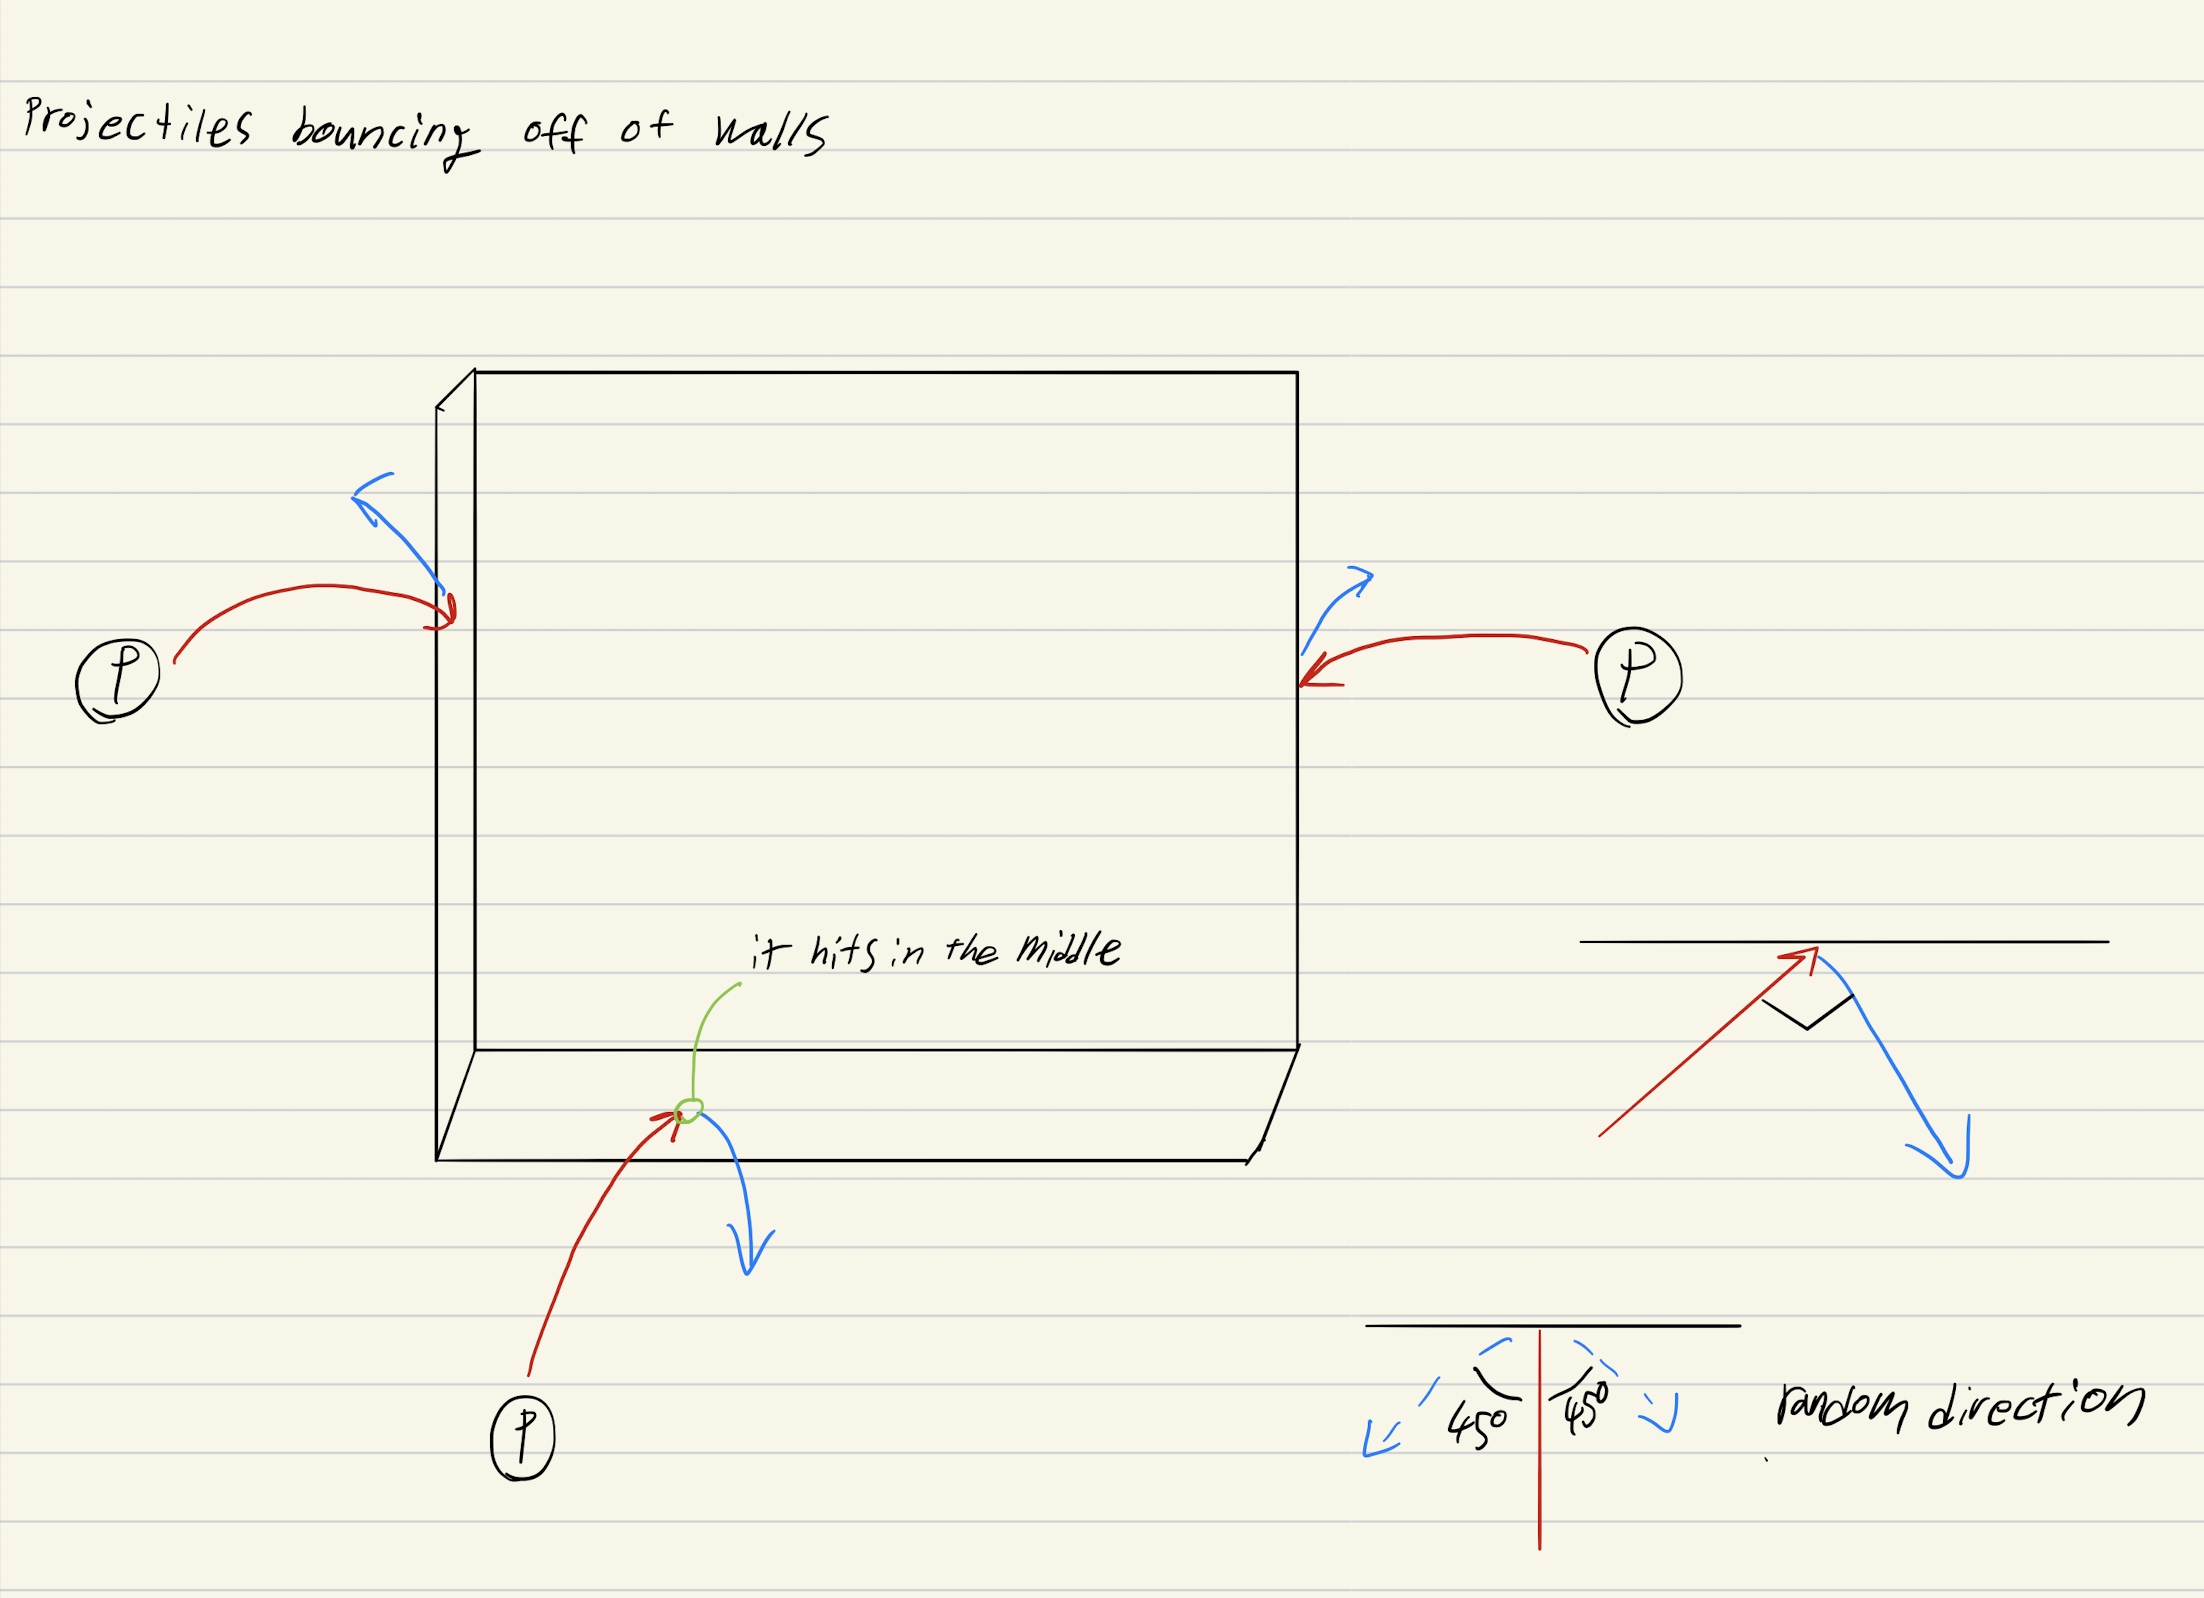 Projectiles bouncing off of walls
P
P
it hits in the middle
45°
45°
random direction
P